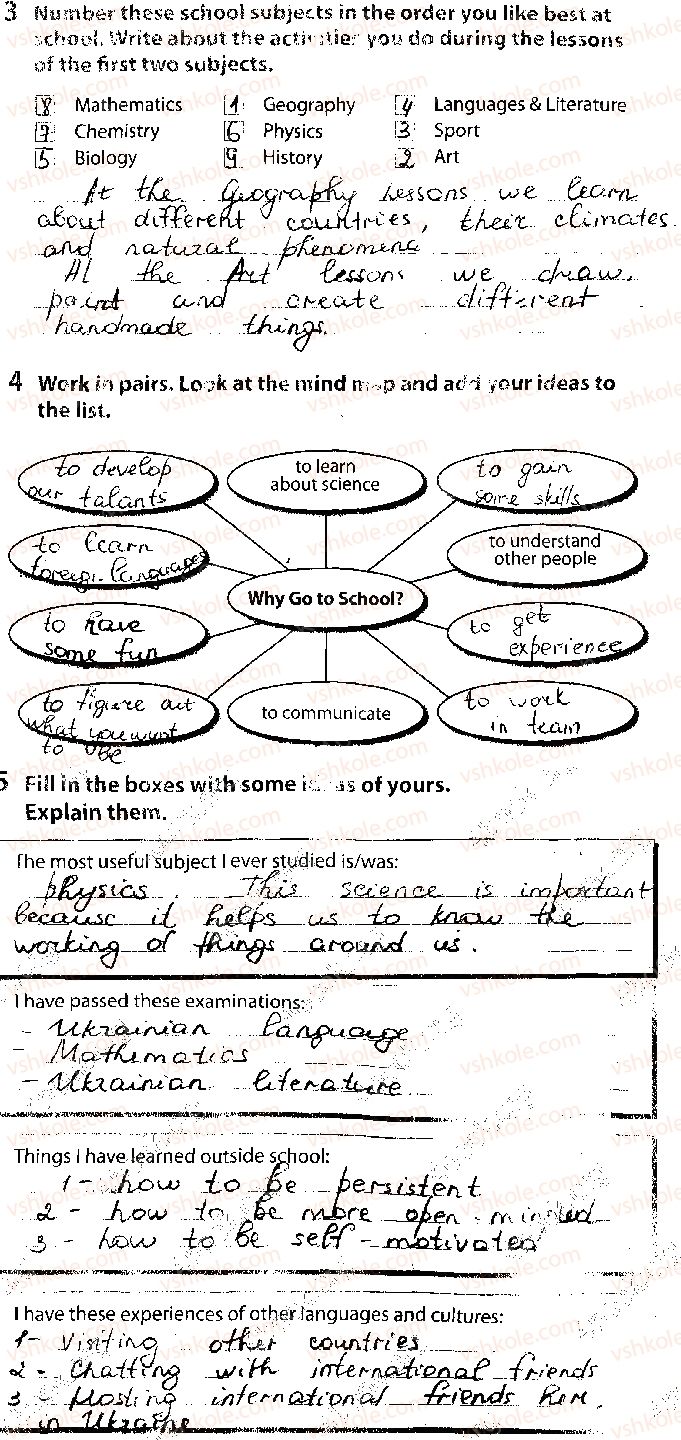 3 Number these school subjects in the order you like best at
school. Write about the activities you do during the lessons
of the first two subjects.
8 Mathematics 1 Geography 4 Languages & Literature
7 Chemistry 6 Physics 3 Sport
5 Biology 9 History 2 Art
At the Geography lessons we learn
about different countries, their climates
and natural phenomena
At the Art lessons we draw,
paint and create different
handmade things.
4 Work in pairs. Look at the mind map and add your ideas to
the list.
to develop
our talants
to learn
about science
to gain
some skills
to learn
foreign languages
to understand
other people
Why Go to School?
to have
some fun
to get
experience
to figure out
what you want
to be
to communicate
to work
in team
5 Fill in the boxes with some ideas of yours.
Explain them.
The most useful subject I ever studied is/was:
physics. This science is important
because it helps us to know the
working of things around us.
I have passed these examinations:
- Ukrainian language
- Mathematics
- Ukrainian literature
Things I have learned outside school:
1 - how to be persistent
2 - how to be more open-minded
3 - how to be self-motivated
I have these experiences of other languages and cultures:
1 - Visiting other countries
2 - Chatting with international friends
3 - Hosting international friends here
in Ukraine
vshkole.com